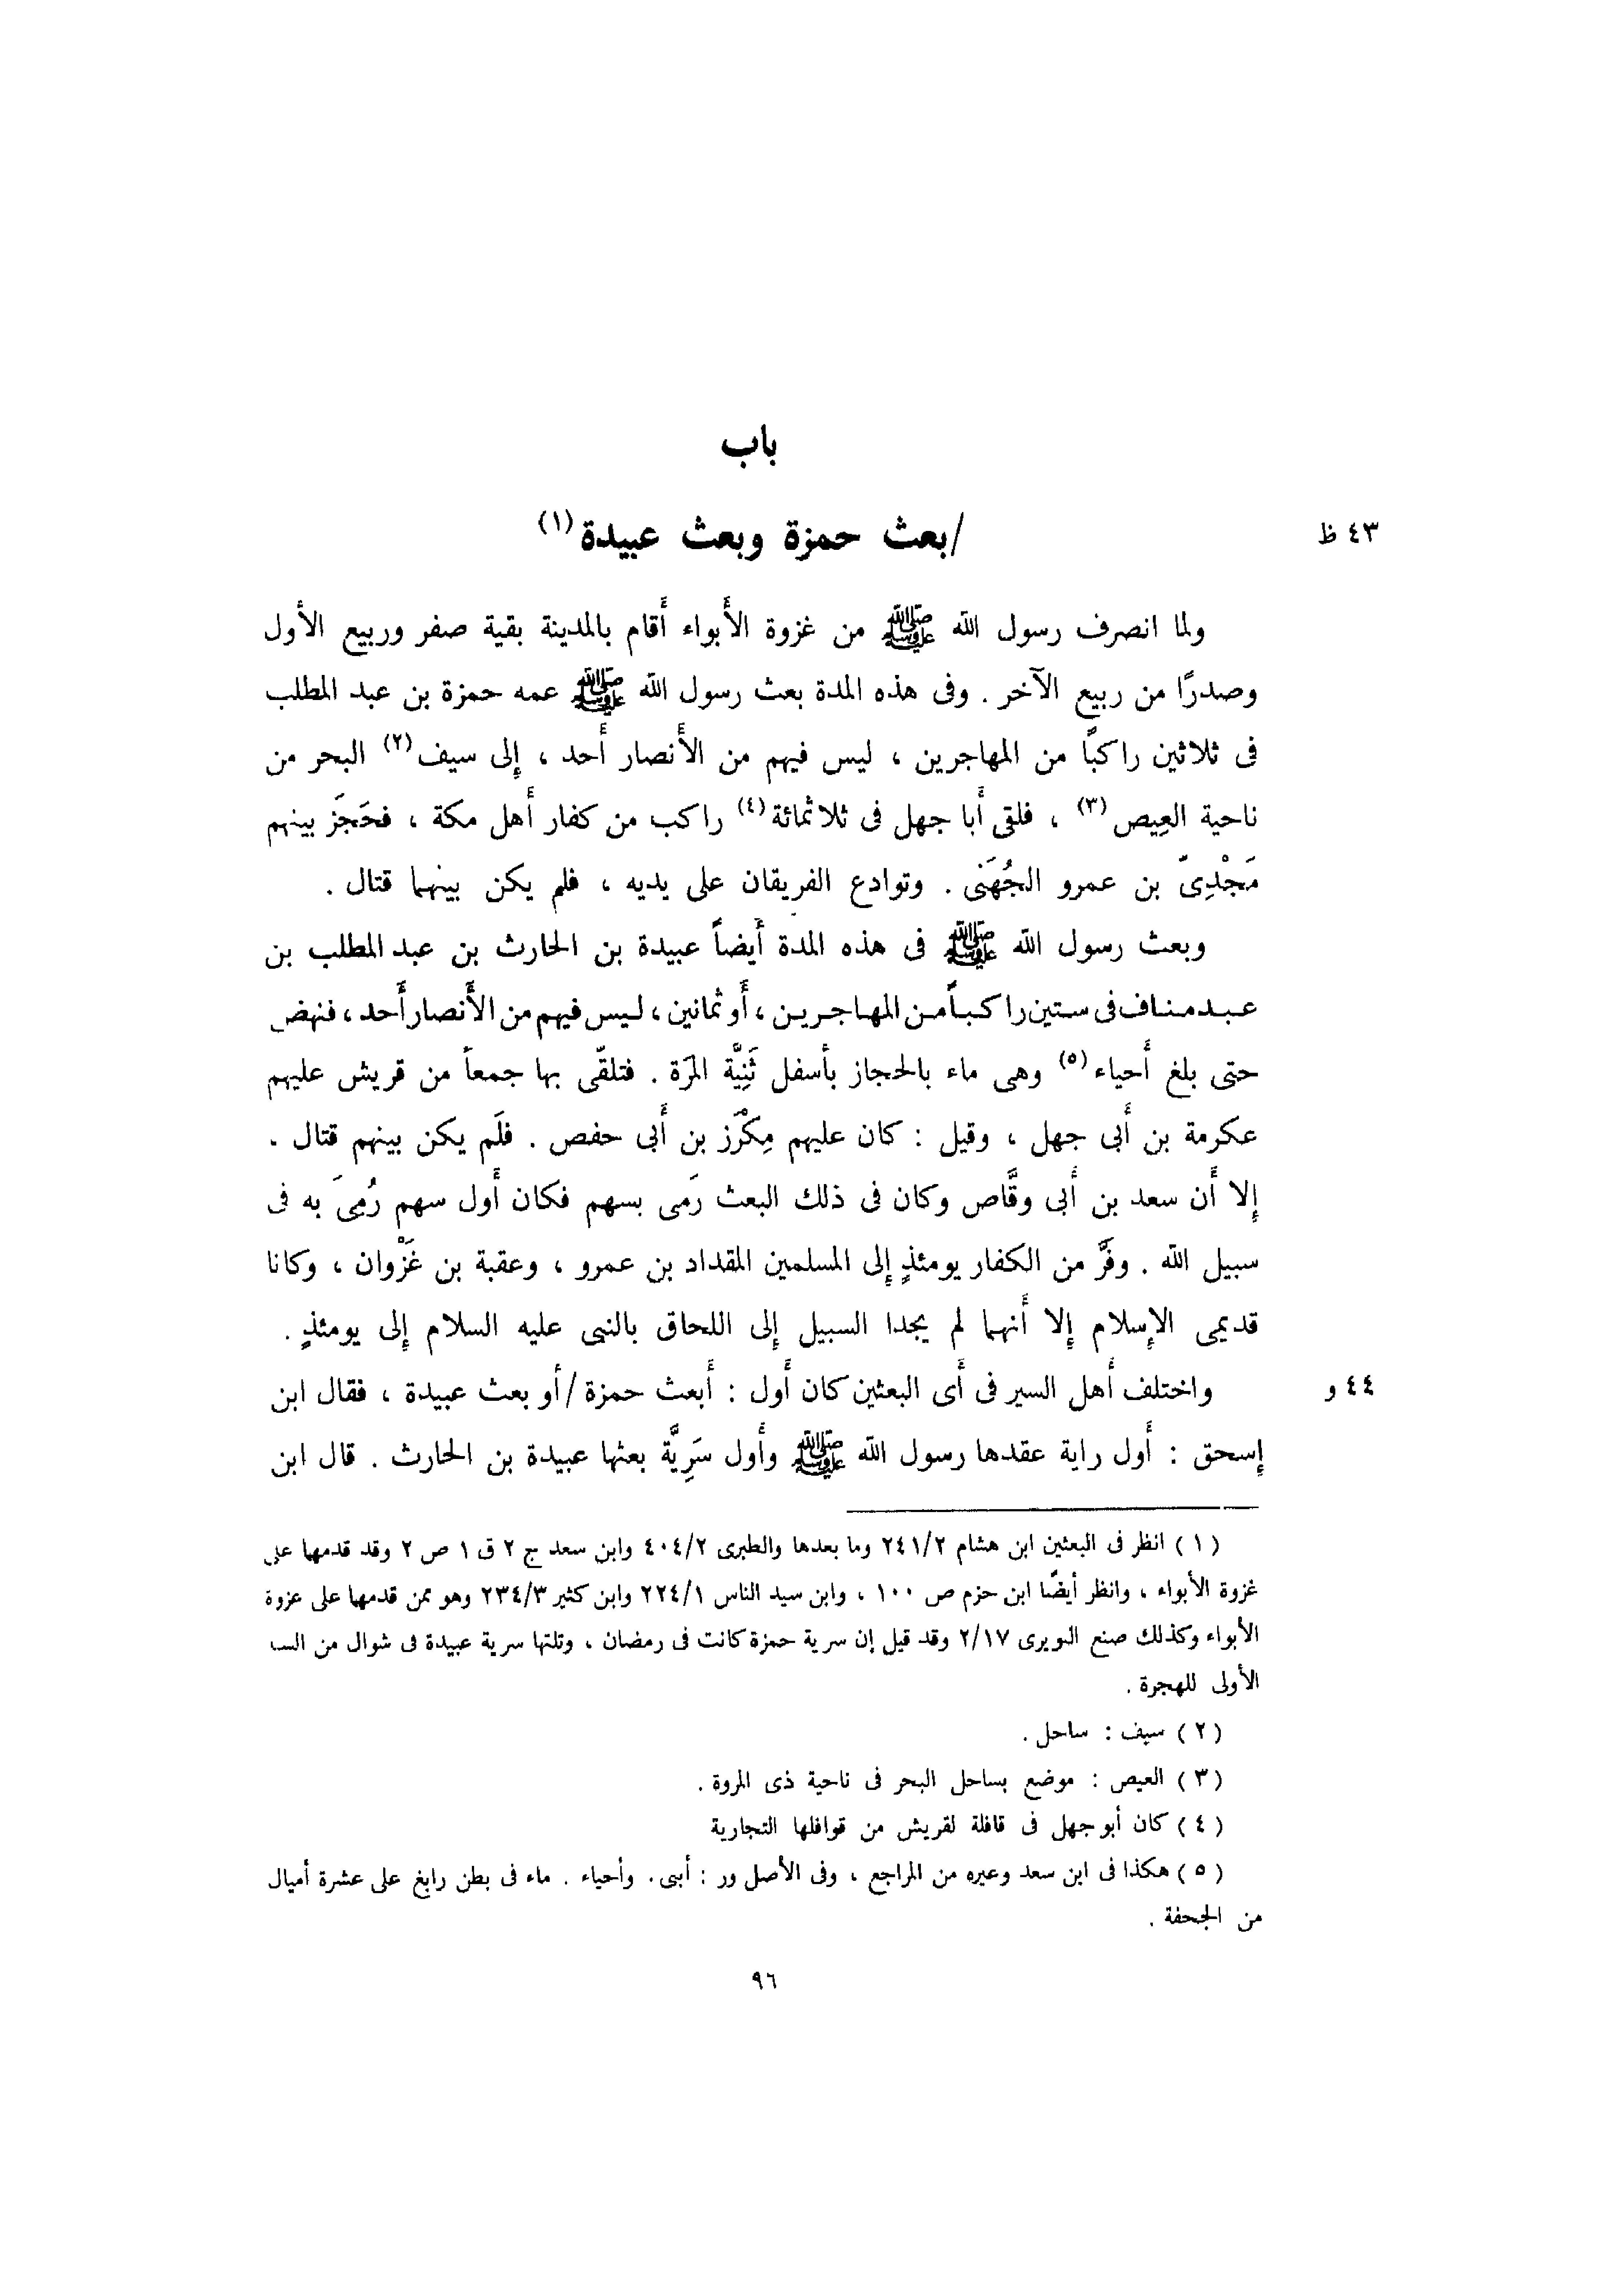 باب
٤٣ ظ
/بعث حمزة وبعث عبيدة (١)
ولما انصرف رسول الله ﷺ من غزوة الأَبواء أَقام بالمدينة بقية صفر وربيع الأَول
وصدرًا من ربيع الآخر . وفى هذه المدة بعث رسول الله ﷺ عمه حمزة بن عبد المطلب
فى ثلاثين راكبًا من المهاجرين ، ليس فيهم من الأَنصار أَحد ، إِلى سيف (٢) البحر من
ناحية العِيص (٣) ، فلقى أَبا جهل فى ثلاثمائة (٤) راكب من كفار أَهل مكة ، فحَجَز بينهم
مَجْدِىّ بن عمرو الجُهَنى . وتوادع الفريقان على يديه ، فلم يكن بينهما قتال .
وبعث رسول الله ﷺ فى هذه المدة أَيضاً عبيدة بن الحارث بن عبد المطلب بن
عبد مناف فى ستين راكباً من المهاجرين ، أَو ثمانين ، ليس فيهم من الأَنصار أَحد ، فنهض
حتى بلغ أَحياء (٥) وهى ماء بالحجاز بأَسفل ثَنِيَّة المَرَة . فتلقَّى بها جمعاً من قريش عليهم
عكرمة بن أَبى جهل ، وقيل : كان عليهم مِكْرَز بن أَبى حفص . فلَم يكن بينهم قتال .
إِلا أَن سعد بن أَبى وقَّاص وكان فى ذلك البعث رَمى بسهم فكان أَول سهم رُمِىَ به فى
سبيل الله . وفَرَّ من الكفار يومئذٍ إِلى المسلمين المقداد بن عمرو ، وعقبة بن غَزْوان ، وكانا
قديمى الإِسلام إِلا أَنهما لم يجدا السبيل إِلى اللحاق بالنبى عليه السلام إِلى يومئذٍ .
واختلف أَهل السير فى أَى البعثين كان أَول : أَبعث حمزة /أَو بعث عبيدة ، فقال ابن
٤٤ و
إِسحق : أَول راية عقدها رسول الله ﷺ وأَول سَرِيَّة بعثها عبيدة بن الحارث . قال ابن
( ١ ) انظر فى البعثين ابن هشام ٢٤١/٢ وما بعدها والطبرى ٤٠٤/٢ وابن سعد ج ٢ ق ١ ص ٢ وقد قدمهما على
غزوة الأبواء ، وانظر أيضًا ابن حزم ص ١٠٠ ، وابن سيد الناس ٢٢٤/١ وابن كثير ٢٣٤/٣ وهو ممن قدمهما على غزوة
الأبواء وكذلك صنع النويرى ٢/١٧ وقد قيل إن سرية حمزة كانت فى رمضان ، وتلتها سرية عبيدة فى شوال من
الأولى للهجرة .
( ٢ ) سيف : ساحل .
( ٣ ) العيص : موضع بساحل البحر فى ناحية ذى المروة .
( ٤ ) كان أبو جهل فى قافلة لقريش من قوافلها التجارية
( ٥ ) هكذا فى ابن سعد وغيره من المراجع ، وفى الأصل ور : أبى . وأحياء . ماء فى بطن رابغ على عشرة أميال
من الجحفة .
٩٦